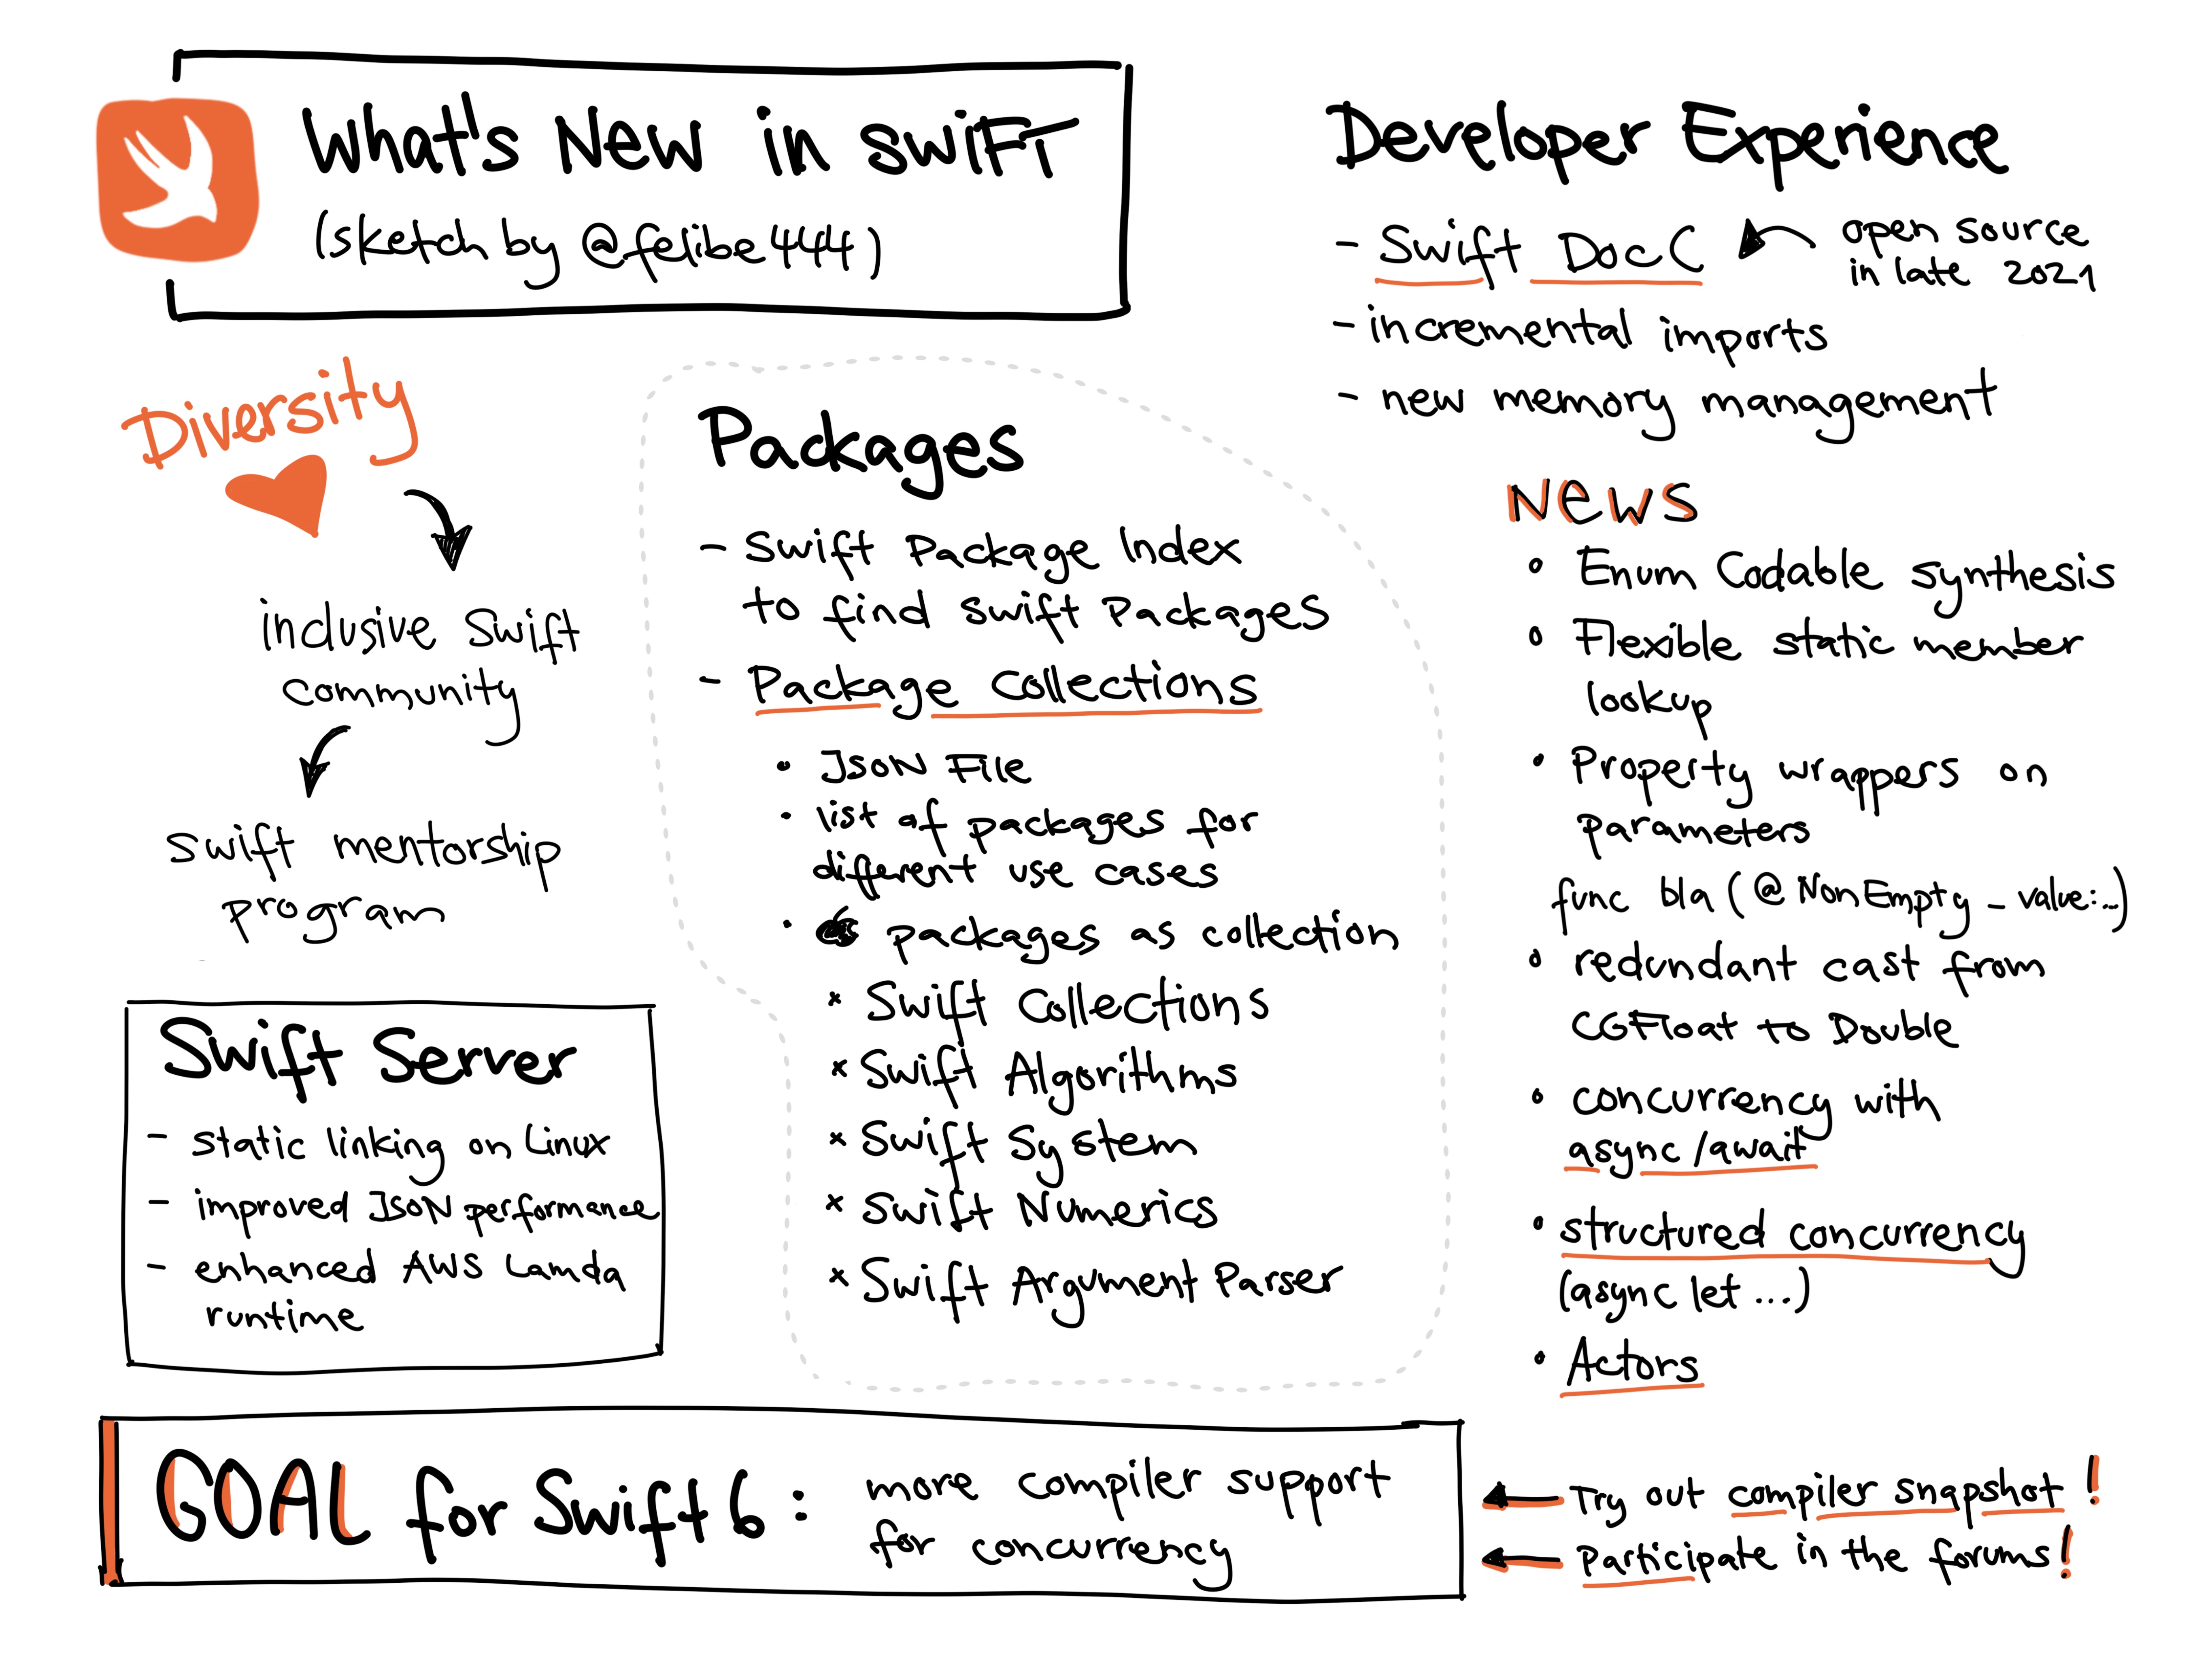 What's New in Swift
(sketch by @felibe444)
Diversity
inclusive Swift
community
swift mentorship
program
Swift Server
- static linking on Linux
- improved JSON performance
- enhanced AWS Lamda
runtime
Packages
- Swift Package Index
to find Swift Packages
- Package Collections
• JSON File
• list of packages for
different use cases
• packages as collection
× Swift Collections
× Swift Algorithms
× Swift System
× Swift Numerics
× Swift Argument Parser
Developer Experience
- Swift DocC
open source
in late 2021
- incremental imports
- new memory management
News
• Enum Codable synthesis
• Flexible static member
lookup
• Property wrappers on
parameters
func bla (@NonEmpty _ value:…)
• redundant cast from
CGFloat to Double
• concurrency with
async/await
• structured concurrency
(async let ...)
• Actors
GOAL for Swift 6: more compiler support
for concurrency
Try out compiler snapshot!
Participate in the forums!